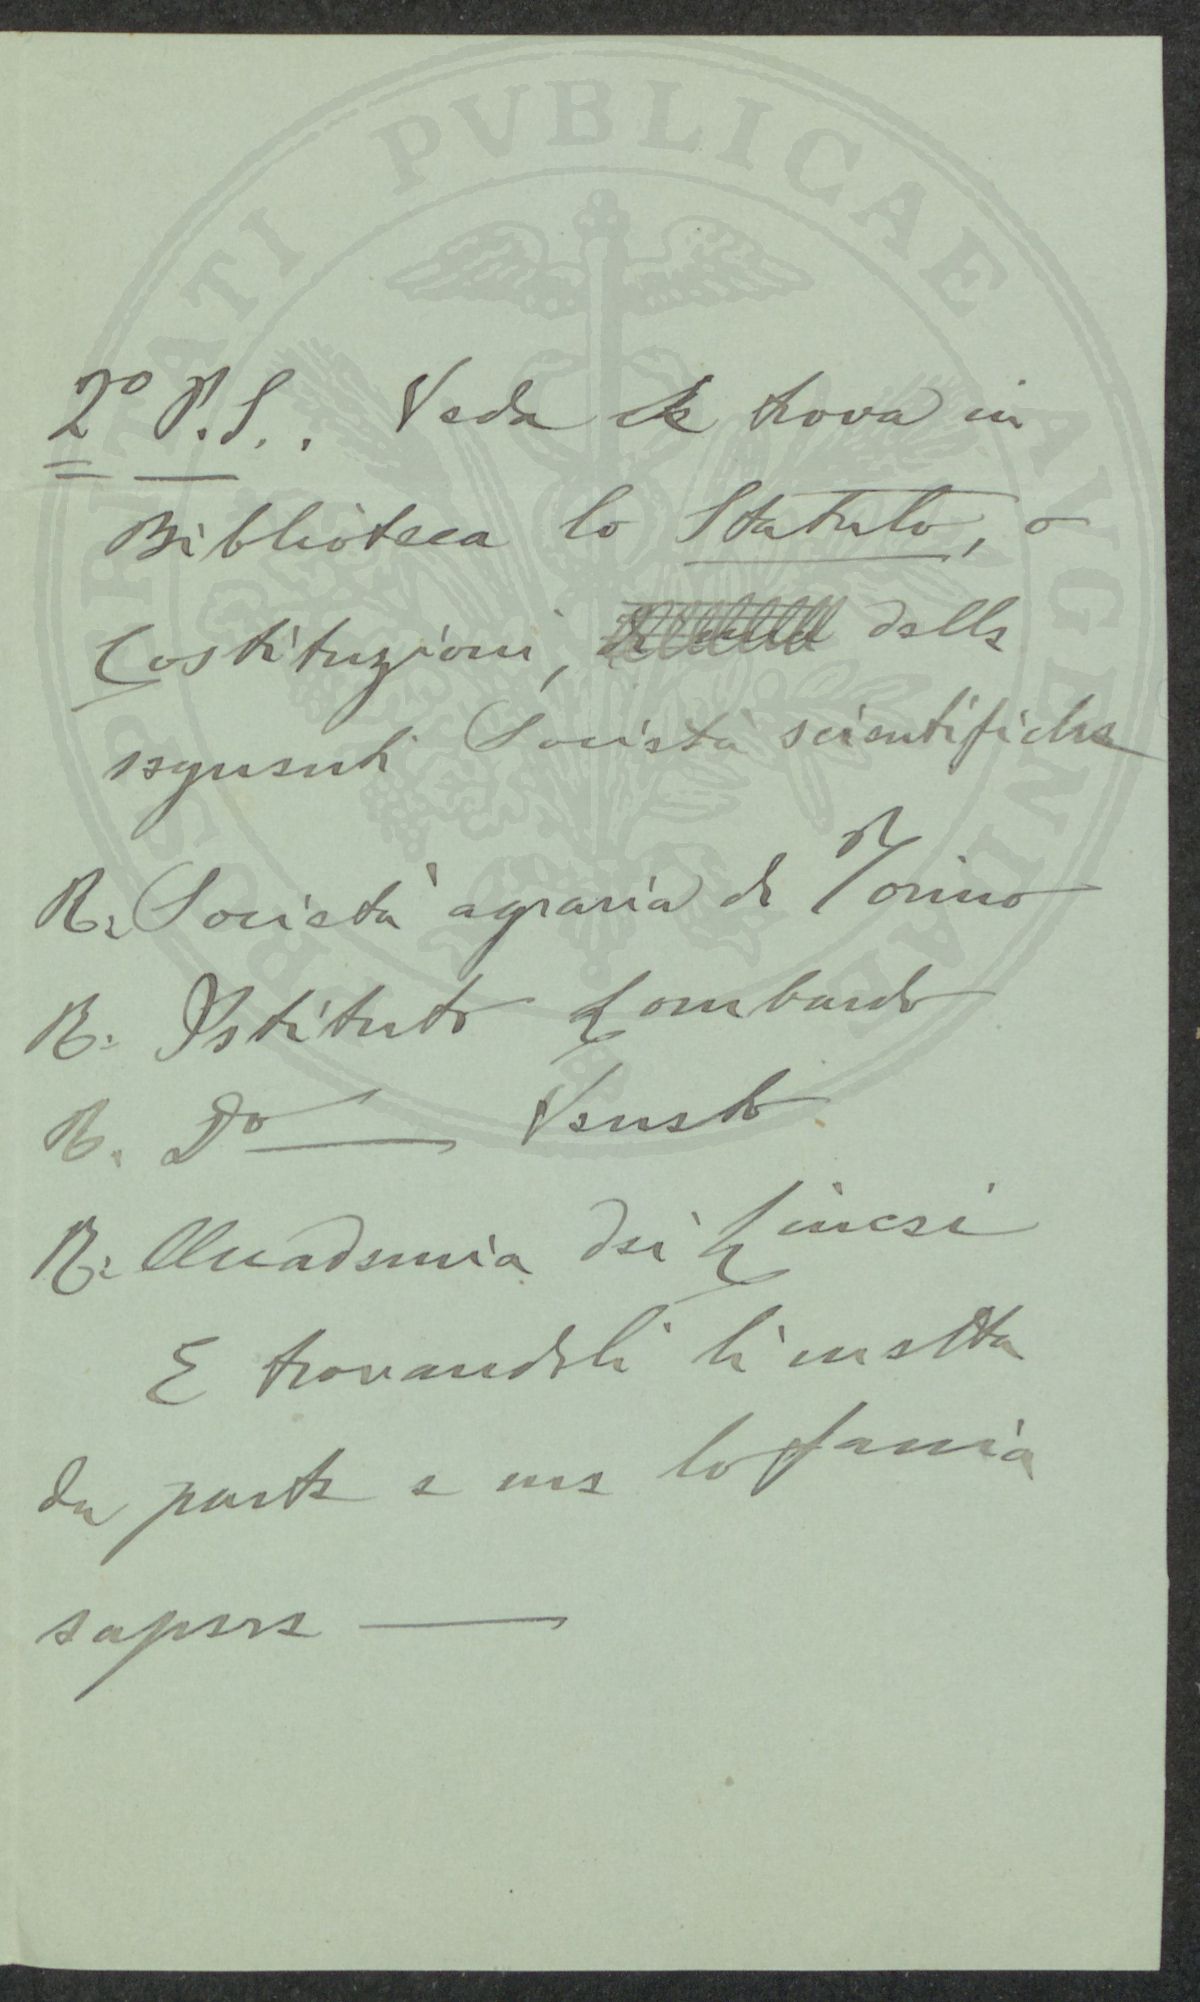 PROSPERITATI PVBLICAE AVGENDAE
2º P.S.. Veda se trova in
Biblioteca lo Statuto, o
Costituzioni, delle
seguenti Società scientifiche
R. Società agraria di Torino
R. Istituto Lombardo
R. Dº Veneto
R. Accademia dei Lincei
E trovandoli li metta
da parte e me lo faccia
sapere